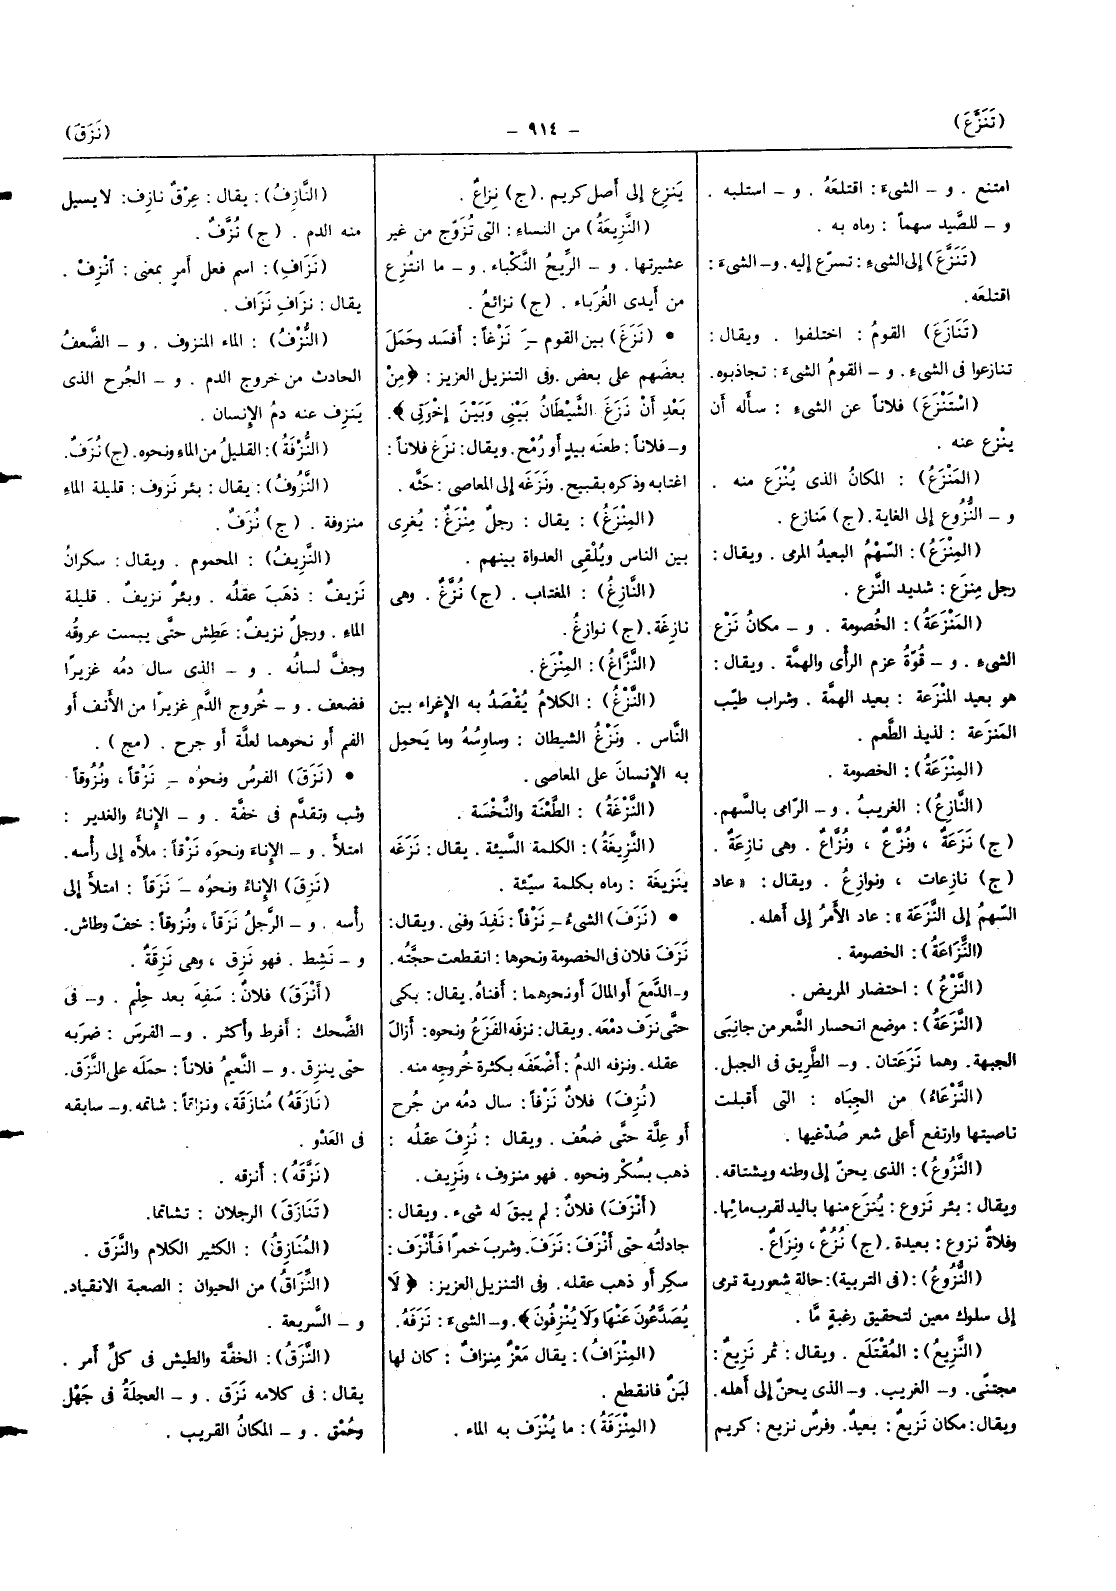 (تَنَزَّعَ)
– ٩١٤ –
(نَزَقَ)
امتنع . و – الشىءَ : اقتلعَهُ . و – استلبه .
و – للصَّيد سهماً : رماه به .
(تَنَزَّعَ) إلى الشىءِ : تسرّع إليه . و– الشىءَ :
اقتلعَه.
(تَنَازَعَ) القومُ : اختلفوا . ويقال :
تنازعوا فى الشىءِ . و – القومُ الشىءَ : تجاذبوه.
(اسْتَنْزَعَ) فلاناً عن الشىءِ : سأله أن
ينْزع عنه .
(المَنْزَعُ) : المكانُ الذى يُنْزَع منه .
و – النُّزُوع إلى الغاية . (ج) مَنازع .
(المِنْزَعُ) : السّهْمُ البعيدُ المرمى . ويقال :
رجل مِنزَع : شديد النَّزع .
(المَنْزَعَةُ) : الخُصومة . و – مكانُ نَزْع
الشىءِ . و – قُوّةُ عزم الرأى والهمَّة . ويقال :
هو بعيد المنْزَعة : بعيد الهمَّة . وشراب طيِّب
المَنزَعة : لذيذ الطَّعم .
(المِنْزَعَةُ) : الخصومة .
(النَّازِعُ) : الغريبُ . و – الرّامى بالسَّهم .
(ج) نَزَعَةٌ ، ونُزَّعٌ ، ونُزَّاعٌ . وهى نازِعةٌ .
(ج) نازِعات ، ونوازِعُ . ويقال : « عاد
السّهمُ إلى النَّزَعَة » : عاد الأَمرُ إلى أهله .
(النَّزَاعَةُ) : الخصومة .
(النَّزْعُ) : احتضار المريض .
(النَّزَعَةُ) : موضع انحسار الشَّعر من جانِبَى
الجبهة . وهما نَزَعَتان . و– الطَّريق فى الجبل .
(النَّزْعَاءُ) من الجِبَاه : التى أَقبلت
ناصيتها وارتفع أعلى شعر صُدْغيها .
(النَّزُوعُ) : الذى يحنّ إلى وطنه ويشتاقه .
ويقال : بئر نَزوع : يُنزَع منها باليد لقرب مائها .
وفلاةٌ نزوع : بعيدة . (ج) نُزُعٌ ، ونِزَاعٌ .
(النُّزُوعُ) : (فى التربية) : حالة شعورية ترمى
إلى سلوك معين لتحقيق رغبةٍ مَّا .
(النَّزِيعُ) : المُقْتَلَع . ويقال : ثمر نَزِيعٌ :
مجتنًى . و– الغريب . و– الذى يحنّ إلى أهله .
ويقال : مكان نَزِيعٌ : بعيدٌ . وفرسٌ نزيع : كريم
يَنزِع إلى أصل كريم . (ج) نِزاعٌ .
(النَّزِيعَةُ) من النساءِ : التى تُزَوّج من غير
عشيرتها . و – الرِّيحُ النَّكْباء . و – ما انتُزِع
من أَيدى الغُرَباء . (ج) نزائعُ .
• (نَزَغَ) بين القوم –َِ نَزْغاً : أَفسَد وحَمَلَ
بعضَهم على بعض . وفى التنزيل العزيز : ﴿مِنْ
بَعْدِ أَنْ نَزَغَ الشَّيْطَانُ بَيْنِى وَبَيْنَ إِخْوَتِى﴾ .
و– فلاناً : طعنَه بيدٍ أو رُمْح . ويقال : نزَغ فلاناً :
اغتابه وذكره بقبيح . ونَزَغَه إلى المعاصى : حَثَّه .
(المِنْزَغُ) : يقال : رجلٌ مِنْزَغٌ : يُغرِى
بين الناس ويُلْقِى العداوة بينهم .
(النَّازِغُ) : المغتاب . (ج) نُزَّغٌ . وهى
نازِغَة . (ج) نوازِغُ .
(النَّزَّاغُ) : المِنْزَغ .
(النَّزْغُ) : الكلامُ يُقْصَدُ به الإغراء بين
النَّاس . ونَزْغُ الشيطان : وساوِسُهُ وما يَحمِل
به الإنسانَ على المعاصى .
(النَّزْغَةُ) : الطَّعْنَة والنَّخْسَة .
(النَّزِيغَةُ) : الكلمة السيّئة . يقال : نَزَغَه
بِنَزِيغَة : رماه بكلمة سيّئة .
• (نَزَفَ) الشىءُ –ِ نَزْفاً : نَفِدَ وفنى . ويقال :
نَزَفَ فلان فى الخصومة ونحوها : انقطعت حجَّتُه .
و– الدَّمعَ أو المالَ أو نحوهما : أفناهُ . يقال : بكى
حتَّى نزَف دمْعَه . ويقال : نزفَه الفَزَعُ ونحوه : أزالَ
عقله . ونزفه الدمُ : أَضْعَفَه بكثرة خُروجِه منه .
(نُزِفَ) فلانٌ نَزْفاً : سال دمُه من جُرح
أو عِلّة حتَّى ضعُف . ويقال : نُزِفَ عقلُه :
ذهب بسُكْر ونحوه . فهو منزوف ، ونَزِيف .
(أَنْزَفَ) فلانٌ : لم يبقَ له شىء . ويقال :
جادلتُه حتى أَنْزَفَ : نَزَفَ . وشربَ خمرًا فأَنْزَفَ :
سكِر أو ذهب عقله . وفى التنزيل العزيز : ﴿لَا
يُصَدَّعُونَ عَنْهَا وَلَا يُنْزِفُونَ﴾ . و– الشىءَ : نَزَفَهُ .
(المِنْزَافُ) : يقال مَعْزٌ مِنزافٌ : كان لها
لبَنٌ فانقطع .
(المِنْزَفَةُ) : ما يُنْزَف به الماء .
(النَّازِفُ) : يقال : عِرْقٌ نازِف : لا يسيل
منه الدم . (ج) نُزَّفٌ .
(نَزَافِ) : اسم فعل أمرٍ بمعنى : اَنْزِفْ .
يقال : نزَافِ نَزَاف .
(النُّزْفُ) : الماء المنزوف . و – الضَّعفُ
الحادث من خروج الدم . و – الجُرح الذى
يَنزِف عنه دمُ الإنسان .
(النُّزْفَةُ) : القليلُ من الماءِ ونحوه . (ج) نُزَفٌ .
(النَّزُوفُ) : يقال : بئر نَزوف : قليلة الماءِ
منزوفة . (ج) نُزَفٌ .
(النَّزِيفُ) : المحموم . ويقال : سكرانُ
نَزيفٌ : ذهَبَ عقلُه . وبئرٌ نزيفٌ . قليلة
الماءِ . ورجلٌ نزيفٌ : عَطِش حتَّى يبست عروقُه
وجفَّ لسانُه . و – الذى سال دمُه غزيرًا
فضعف . و – خُروج الدَّم غزيرًا من الأَنف أو
الفم أو نحوهما لعلَّة أو جرح . (مج) .
• (نَزَقَ) الفرسُ ونحوُه –ِ نَزْقاً ، ونُزُوقاً :
وثب وتقدَّم فى خفَّة . و – الإناءُ والغدير :
امتلأَ . و – الإناءَ ونحوَه نَزْقاً : ملأَه إلى رأسه .
(نَزِقَ) الإناءُ ونحوُه –َ نَزَقاً : امتلأَ إلى
رأسه . و – الرَّجلُ نَزَقاً ، ونُزوقاً : خفّ وطاش .
و – نَشِط . فهو نَزِق ، وهى نَزِقَةٌ .
(أَنْزَقَ) فلانٌ : سَفِهَ بعد حِلْم . و– فى
الضَّحك : أفرط وأكثر . و– الفرسَ : ضرَبه
حتى ينزِق . و – النَّعيمُ فلاناً : حمَلَه على النَّزَق .
(نَازَقَهُ) مُنازَقَة ، ونزاقاً : شاتمه . و– سابقه
فى العَدْو .
(نَزَّقَهُ) : أنزقه .
(تَنَازَقَ) الرجلان : تشاتما .
(المُنَازِقُ) : الكثير الكلام والنَّزَق .
(النِّزَاقُ) من الحيوان : الصعبة الانقياد .
و – السَّريعة .
(النَّزَقُ) : الخفَّة والطيش فى كلِّ أمر .
يقال : فى كلامه نَزَق . و – العجلَةُ فى جَهْل
وحُمْق . و – المكانُ القريب .